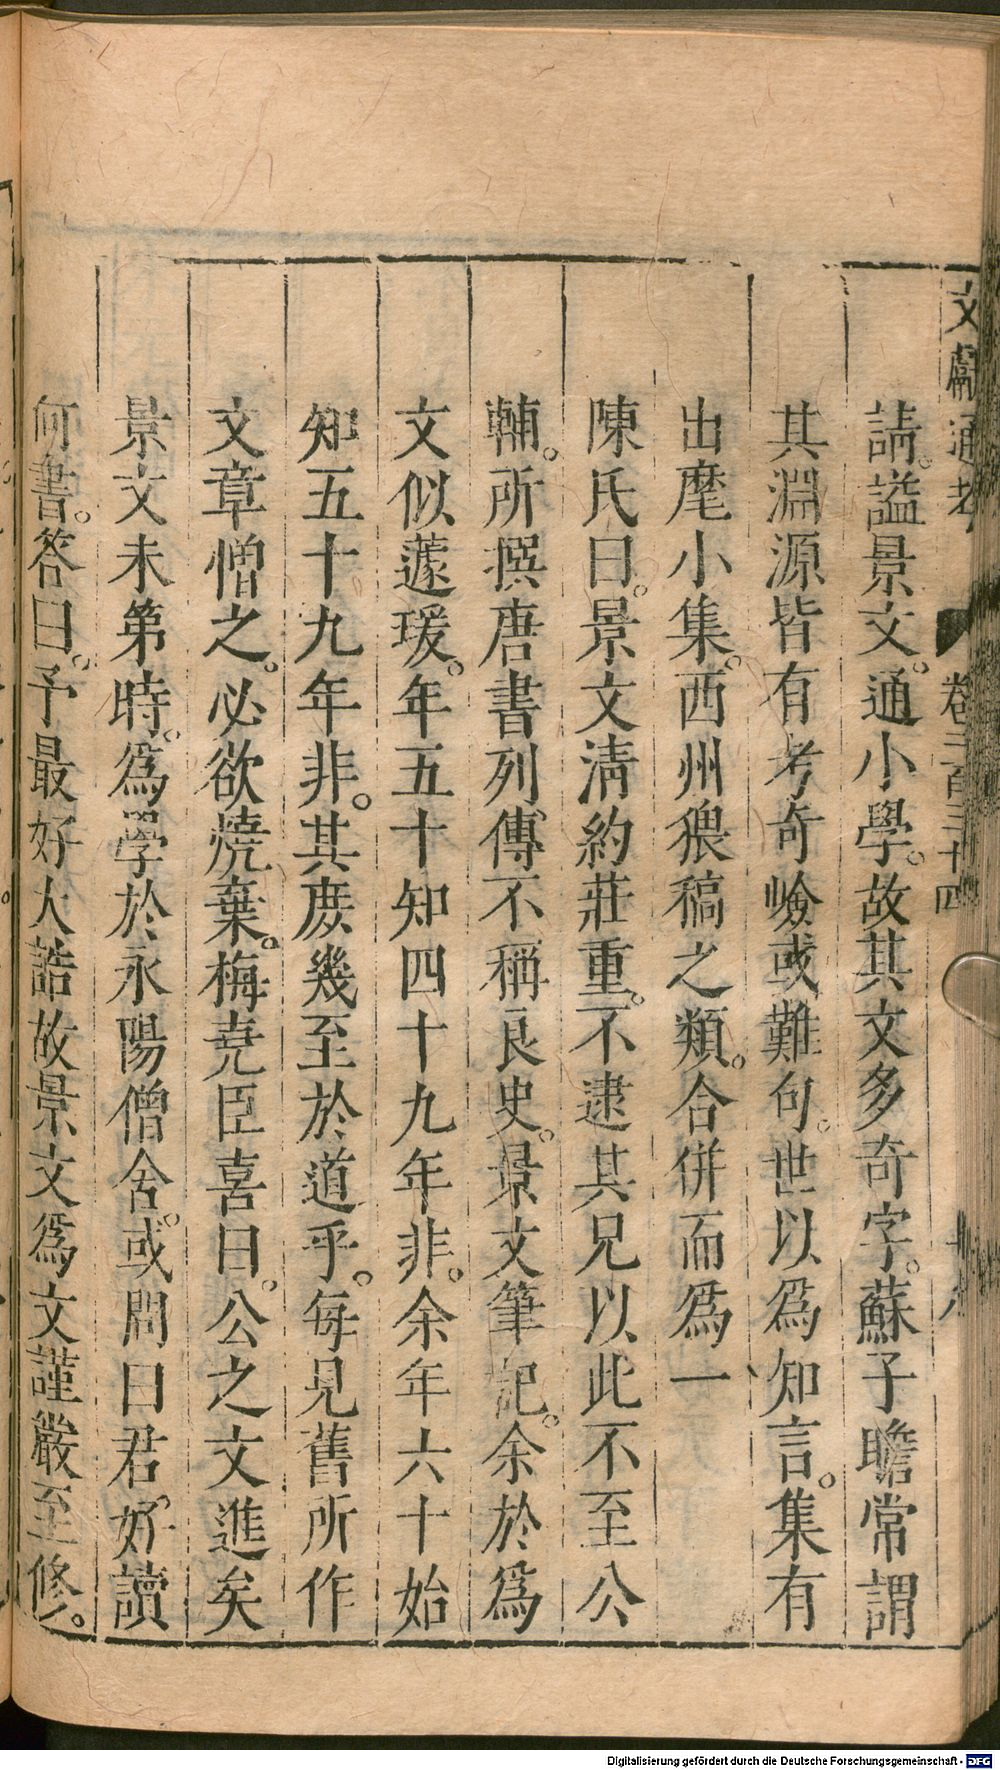 文獻通考 卷二百三十四
請謚景文。通小學。故其文多奇字。蘇子瞻常謂
其淵源皆有考奇嶮或難句。世以爲知言。集有
出麾小集。西州猥稿之類。合併而爲一
陳氏曰。景文清約莊重。不逮其兄以此不至公
輔。所撰唐書列傳不稱良史。景文筆記。余於爲
文似蘧瑗。年五十知四十九年非。余年六十始
知五十九年非。其庶幾至於道乎。每見舊所作
文章憎之。必欲燒棄。梅堯臣喜曰。公之文進矣
景文未第時。爲學於永陽僧舍。或問曰君好讀
何書。答曰。予最好大誥故景文爲文謹嚴至修。
Digitalisierung gefördert durch die Deutsche Forschungsgemeinschaft - DFG